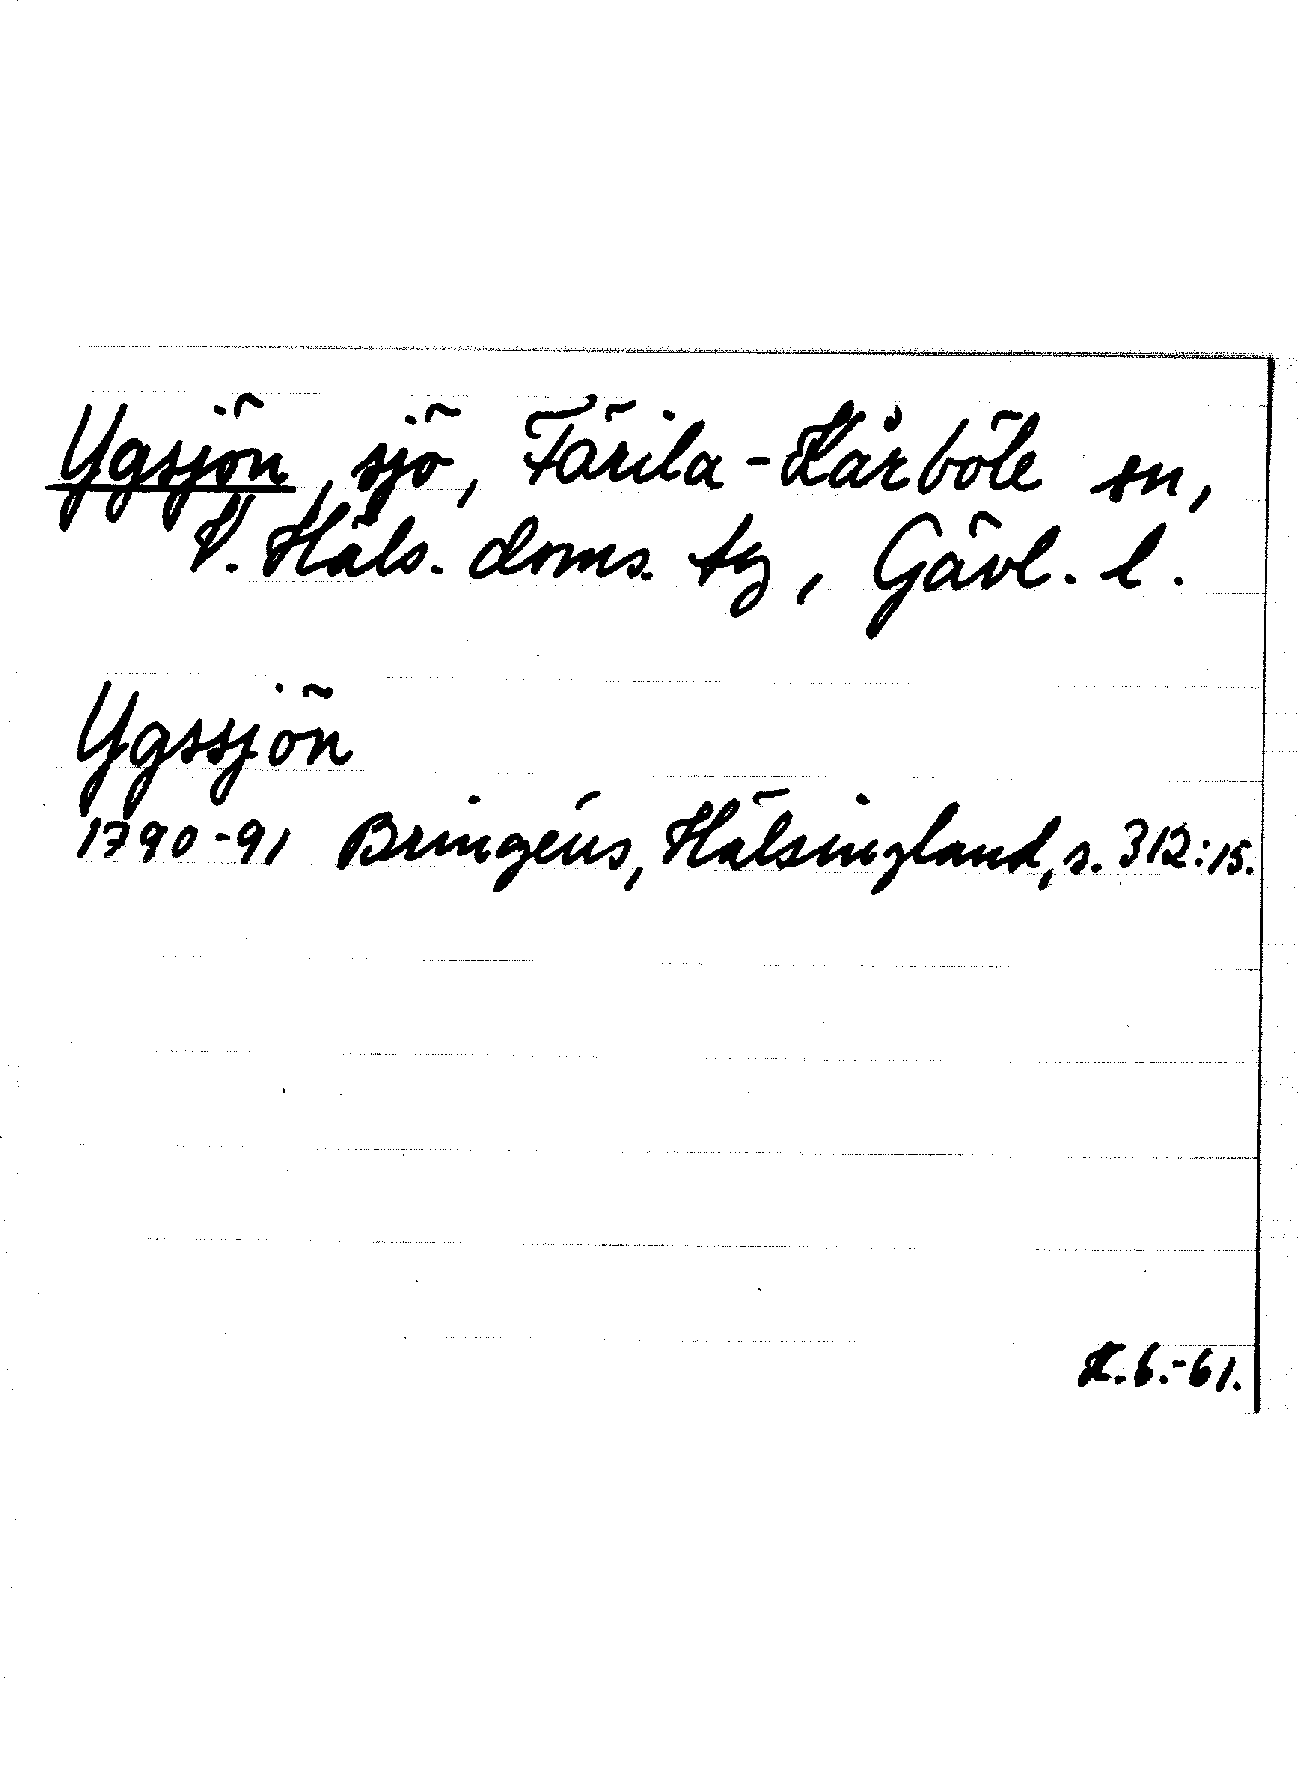 Ygsjön, sjö, Färila-Kårböle sn,
V. Häls. doms. tg, Gävl. l.
Ygssjön
1790-91 Bringéus, Hälsingland, s. 312:15.
K.6.-61.